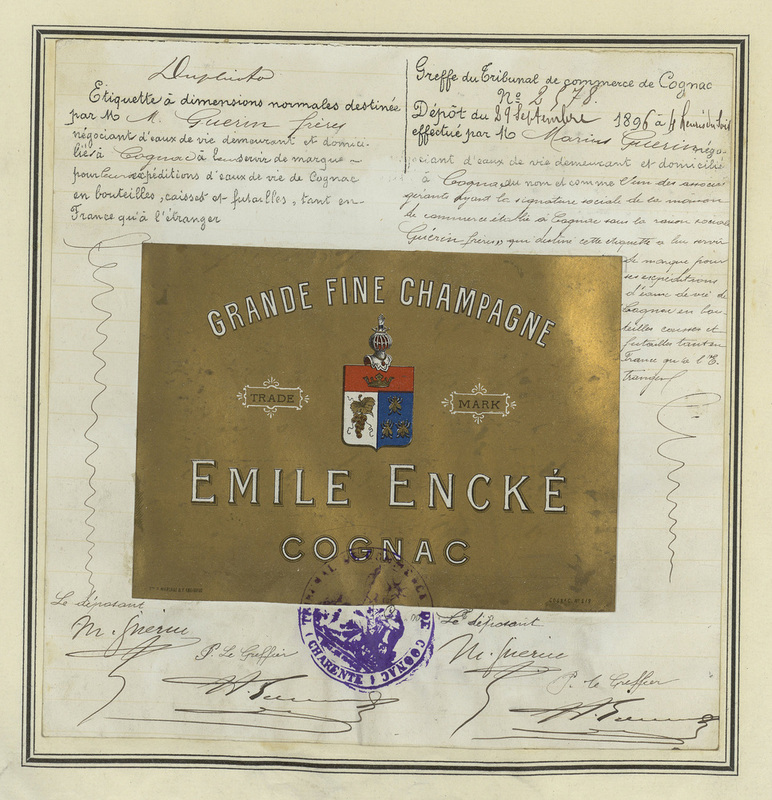 Duplicata
Etiquette à dimensions normales destinée
par M M. Guerin frères
négociant d'eaux de vie demeurant et domici-
liés à Cognac à servir de marque
pour expéditions d'eaux de vie de Cognac
en bouteilles, caisses et futailles, tant en
France qu'à l'étranger
Greffe du Tribunal de commerce de Cognac
Nº 2
Dépôt du 29 Septembre 1896 à 4 Heures du soir
effectué par M Marius Guerin négo-
ciant d'eaux de vie demeurant et domicilié
à Cognac au nom et comme l'un des associés
gérants ayant la signature sociale de la maison
de commerce établie à Cognac sous la raison sociale
Guérin frères, qui destine cette étiquette à lui servir
de marque pour
ses expéditions
d'eaux de vie de
Cognac en bou-
teilles caisses et
futailles tant en
France qu'à l'E-
tranger
GRANDE FINE CHAMPAGNE
TRADE MARK
EMILE ENCKÉ
COGNAC
Le déposant
M. Guerin
P. Le Greffier
TRIBUNAL DE COMMERCE DE COGNAC
(CHARENTE)
Le déposant
M. Guerin
P. le Greffier